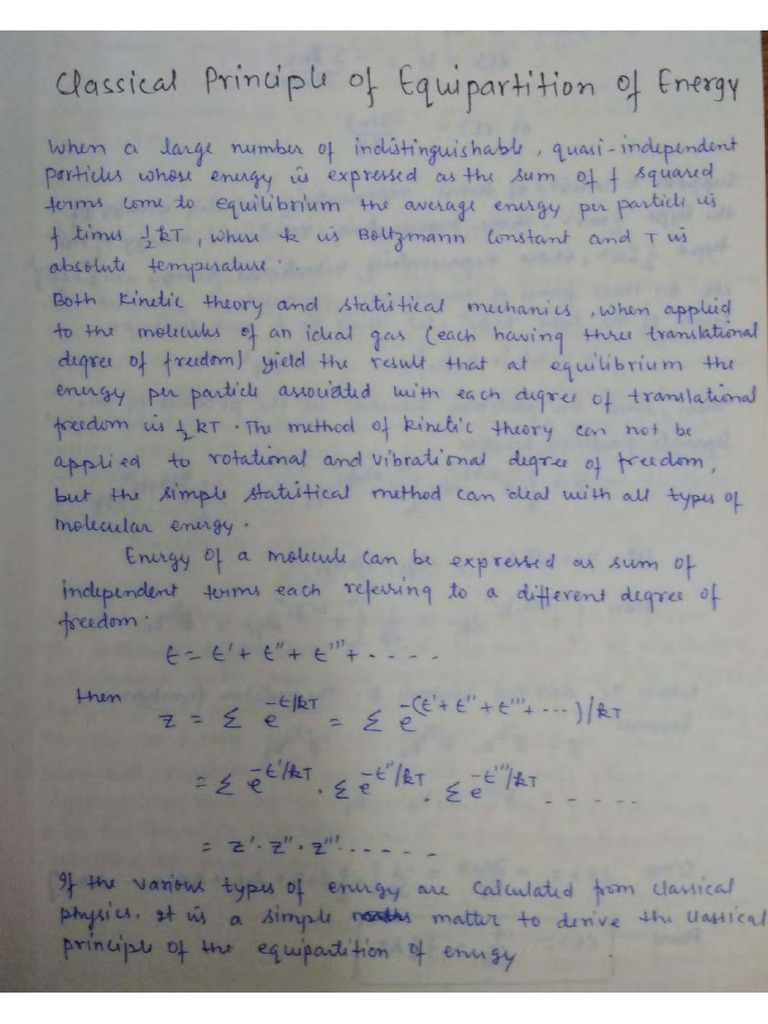 Classical Principle of Equipartition of Energy
When a large number of indistinguishable, quasi-independent
particles whose energy is expressed as the sum of f squared
terms come to equilibrium the average energy per particle is
f times 1/2 kT, where k is Boltzmann Constant and T is
absolute temperature.
Both Kinetic theory and statistical mechanics, when applied
to the molecules of an ideal gas (each having three translational
degree of freedom) yield the result that at equilibrium the
energy per particle associated with each degree of translational
freedom is 1/2 kT. The method of kinetic theory can not be
applied to rotational and vibrational degree of freedom,
but the simple statistical method can deal with all types of
molecular energy.
Energy of a molecule can be expressed as sum of
independent terms each referring to a different degree of
freedom.
ϵ = ϵ' + ϵ'' + ϵ''' + . . . .
then
z = Σ e^{-ϵ/kT} = Σ e^{-(ϵ'+ϵ''+ϵ'''+...)/kT}
= Σ e^{-ϵ'/kT} . Σ e^{-ϵ''/kT} . Σ e^{-ϵ'''/kT} - - - - -
= z' . z'' . z''' . . . . .
If the various types of energy are calculated from classical
physics. It is a simple matter to derive the classical
principle of the equipartition of energy